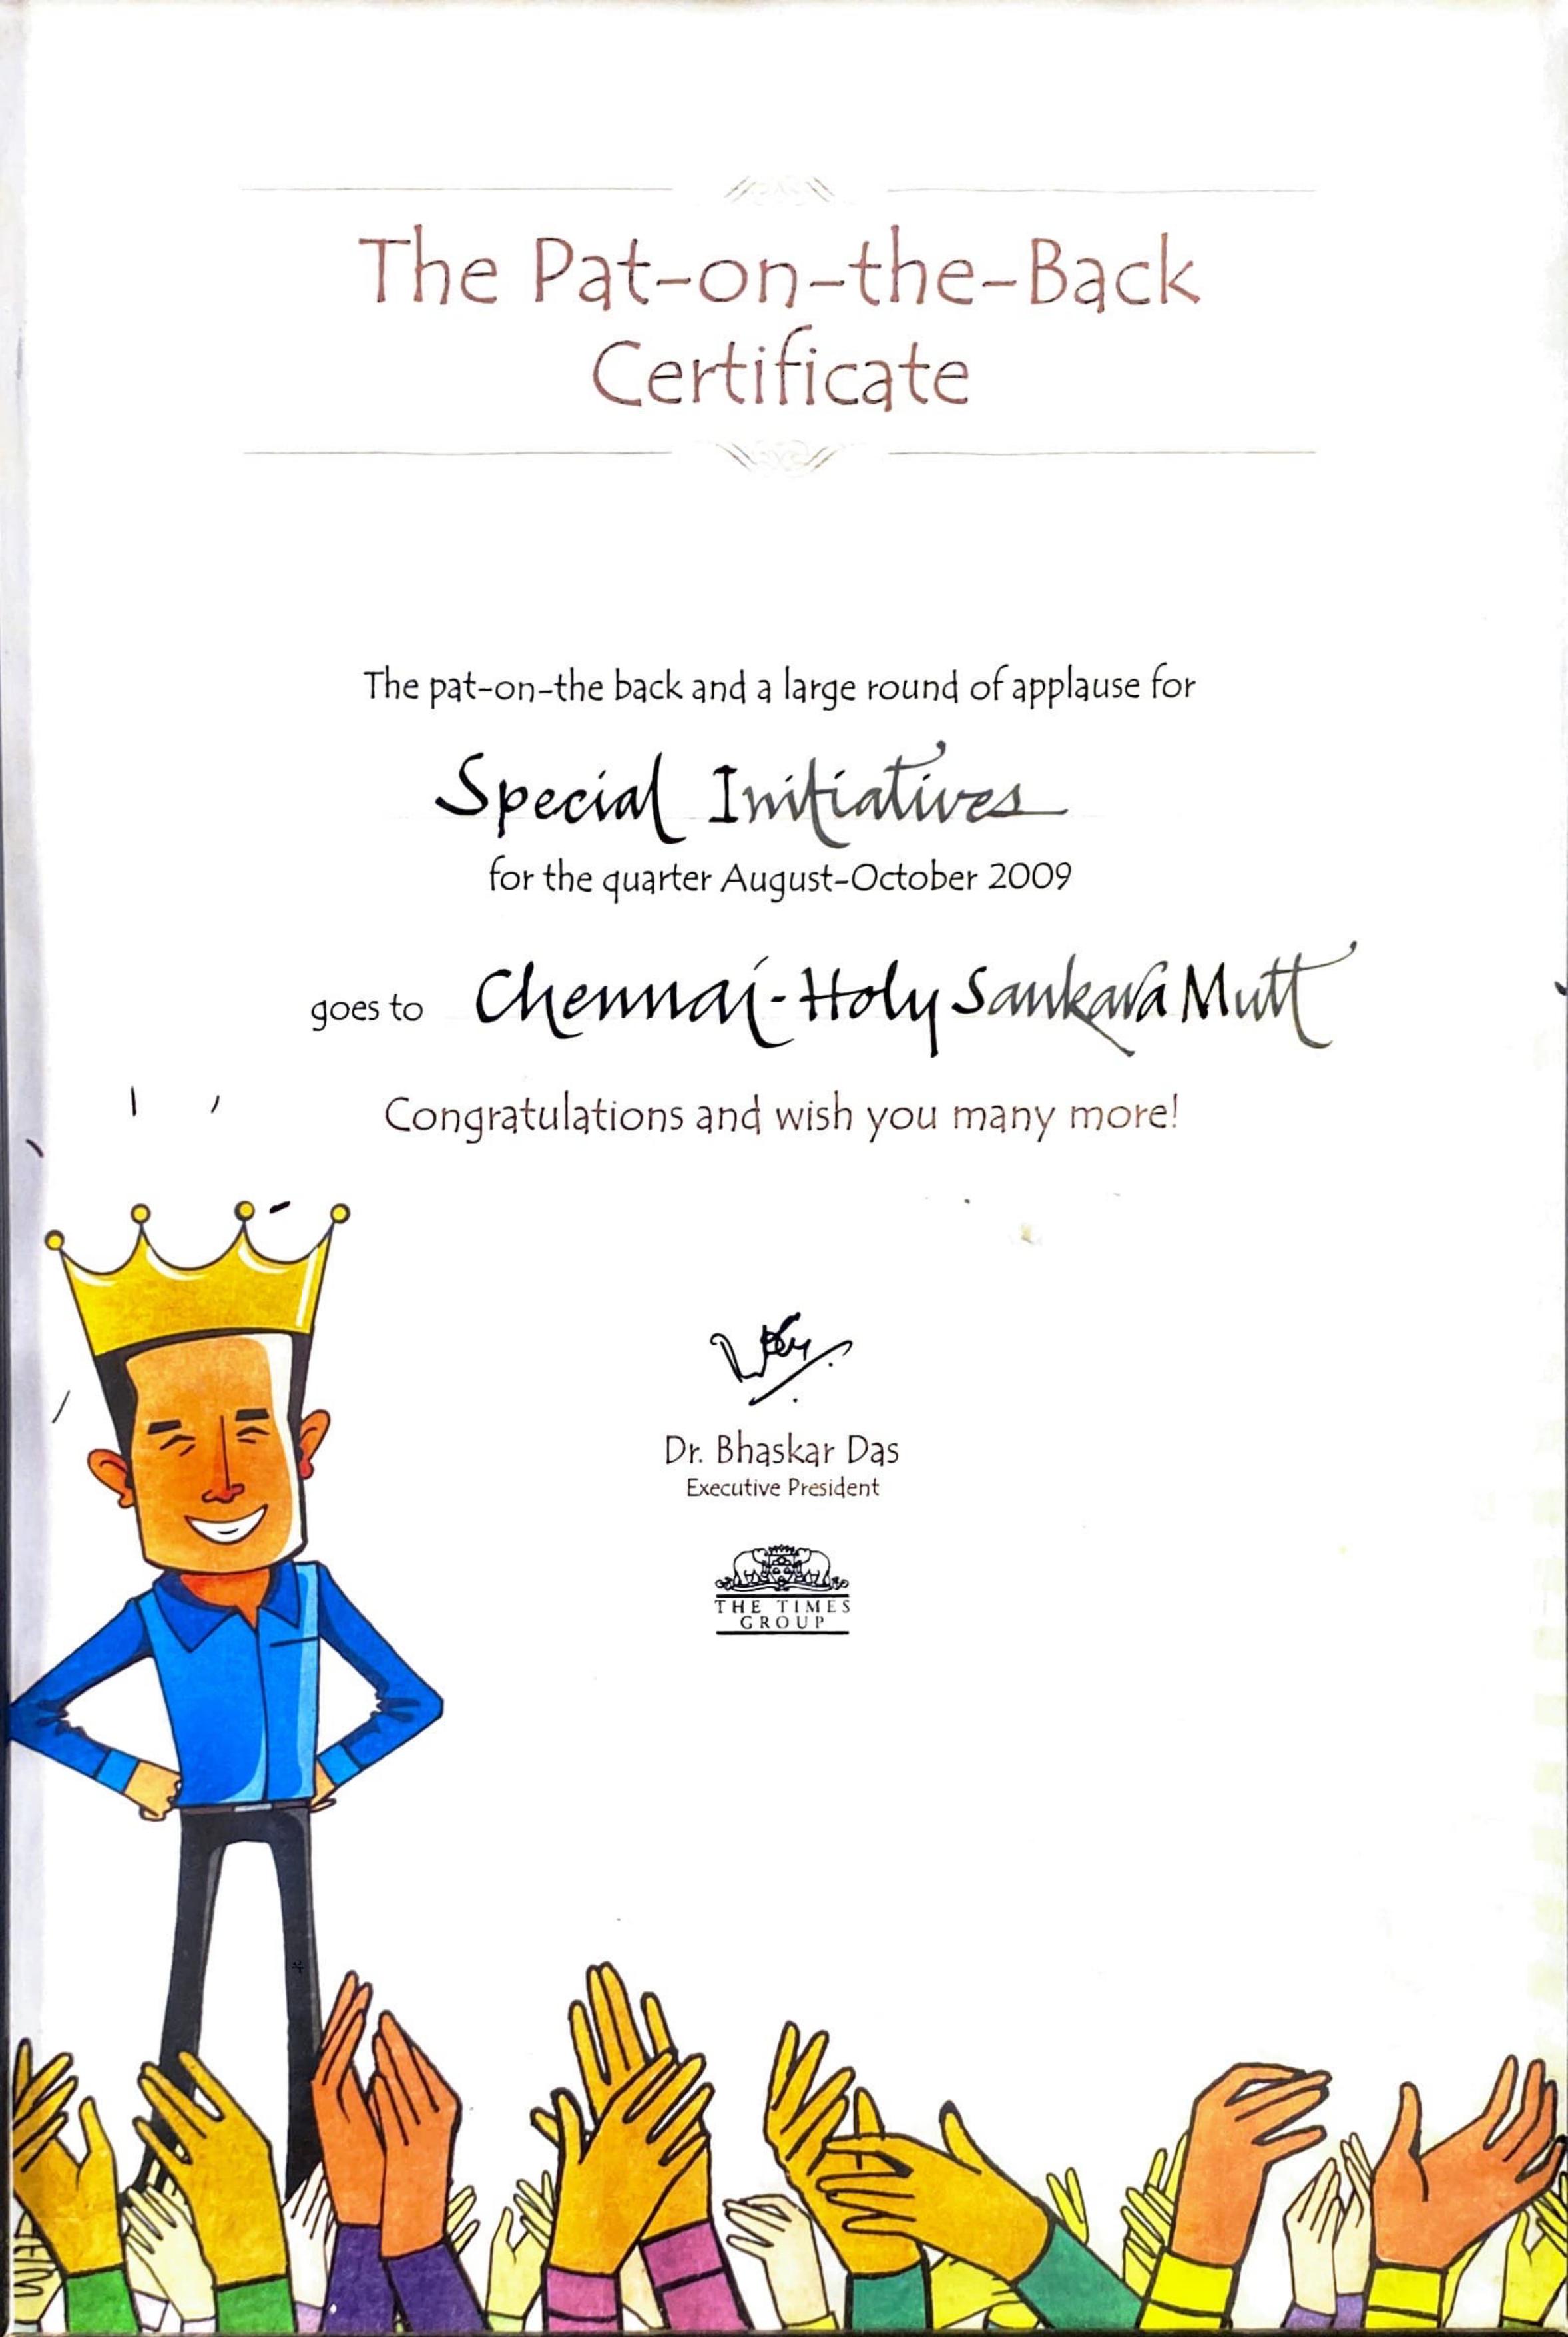 The Pat-on-the-Back
Certificate
The pat-on-the back and a large round of applause for
Special Initiatives
for the quarter August-October 2009
goes to Chennai-Holy Sankara Mutt
Congratulations and wish you many more!
Dr. Bhaskar Das
Executive President
THE TIMES
GROUP